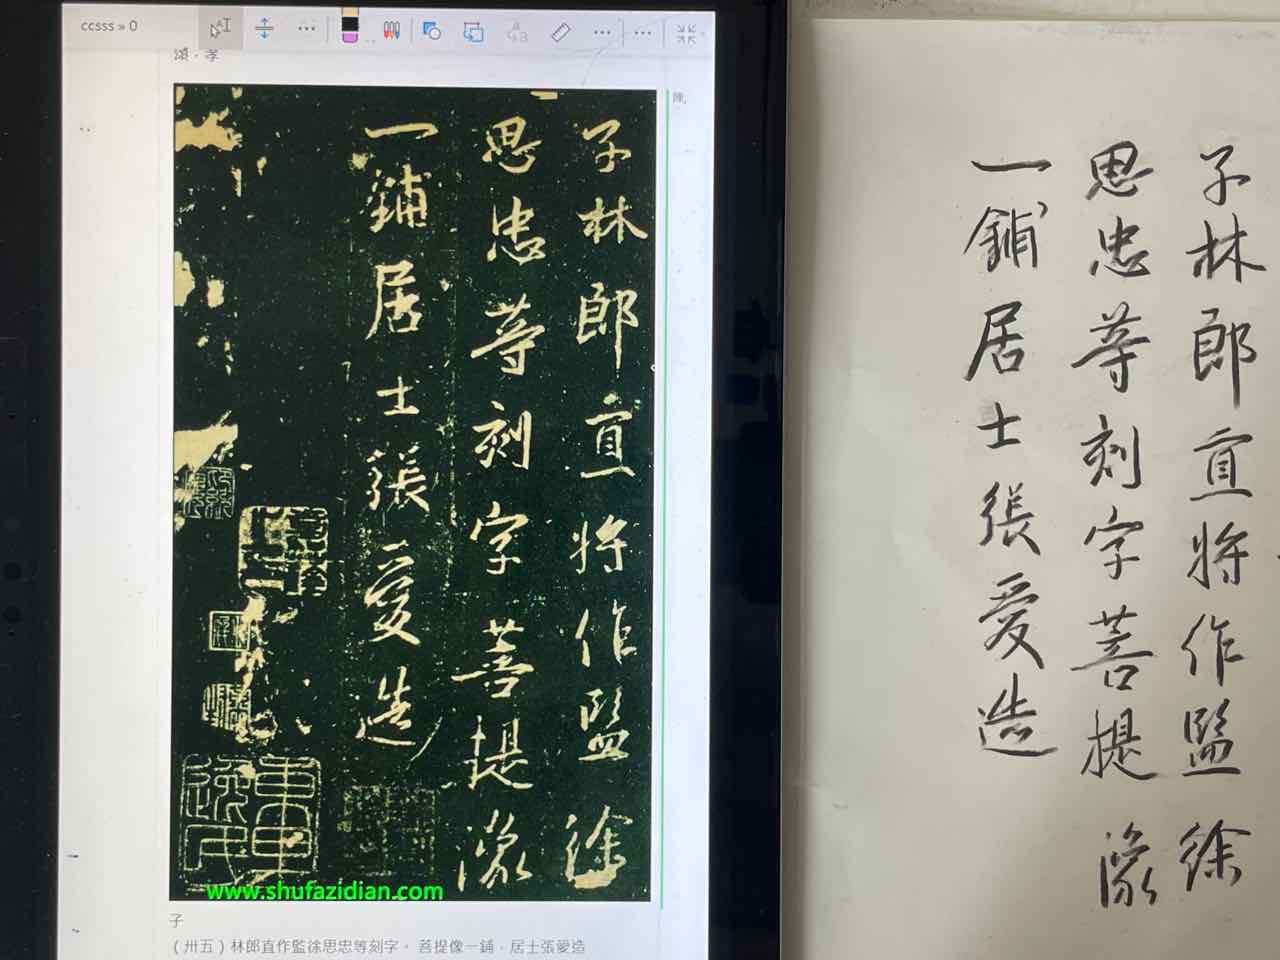 ccsss » 0
頌．孝
陳,
子林郎宣將作監徐
思忠等刻字菩提像
一鋪居士張愛造
www.shufazidian.com
子
（卅五）林郎直作監徐思忠等刻字。 菩提像一鋪．居士張愛造
子林郎宣將作監徐
思忠等刻字菩提像
一鋪居士張愛造